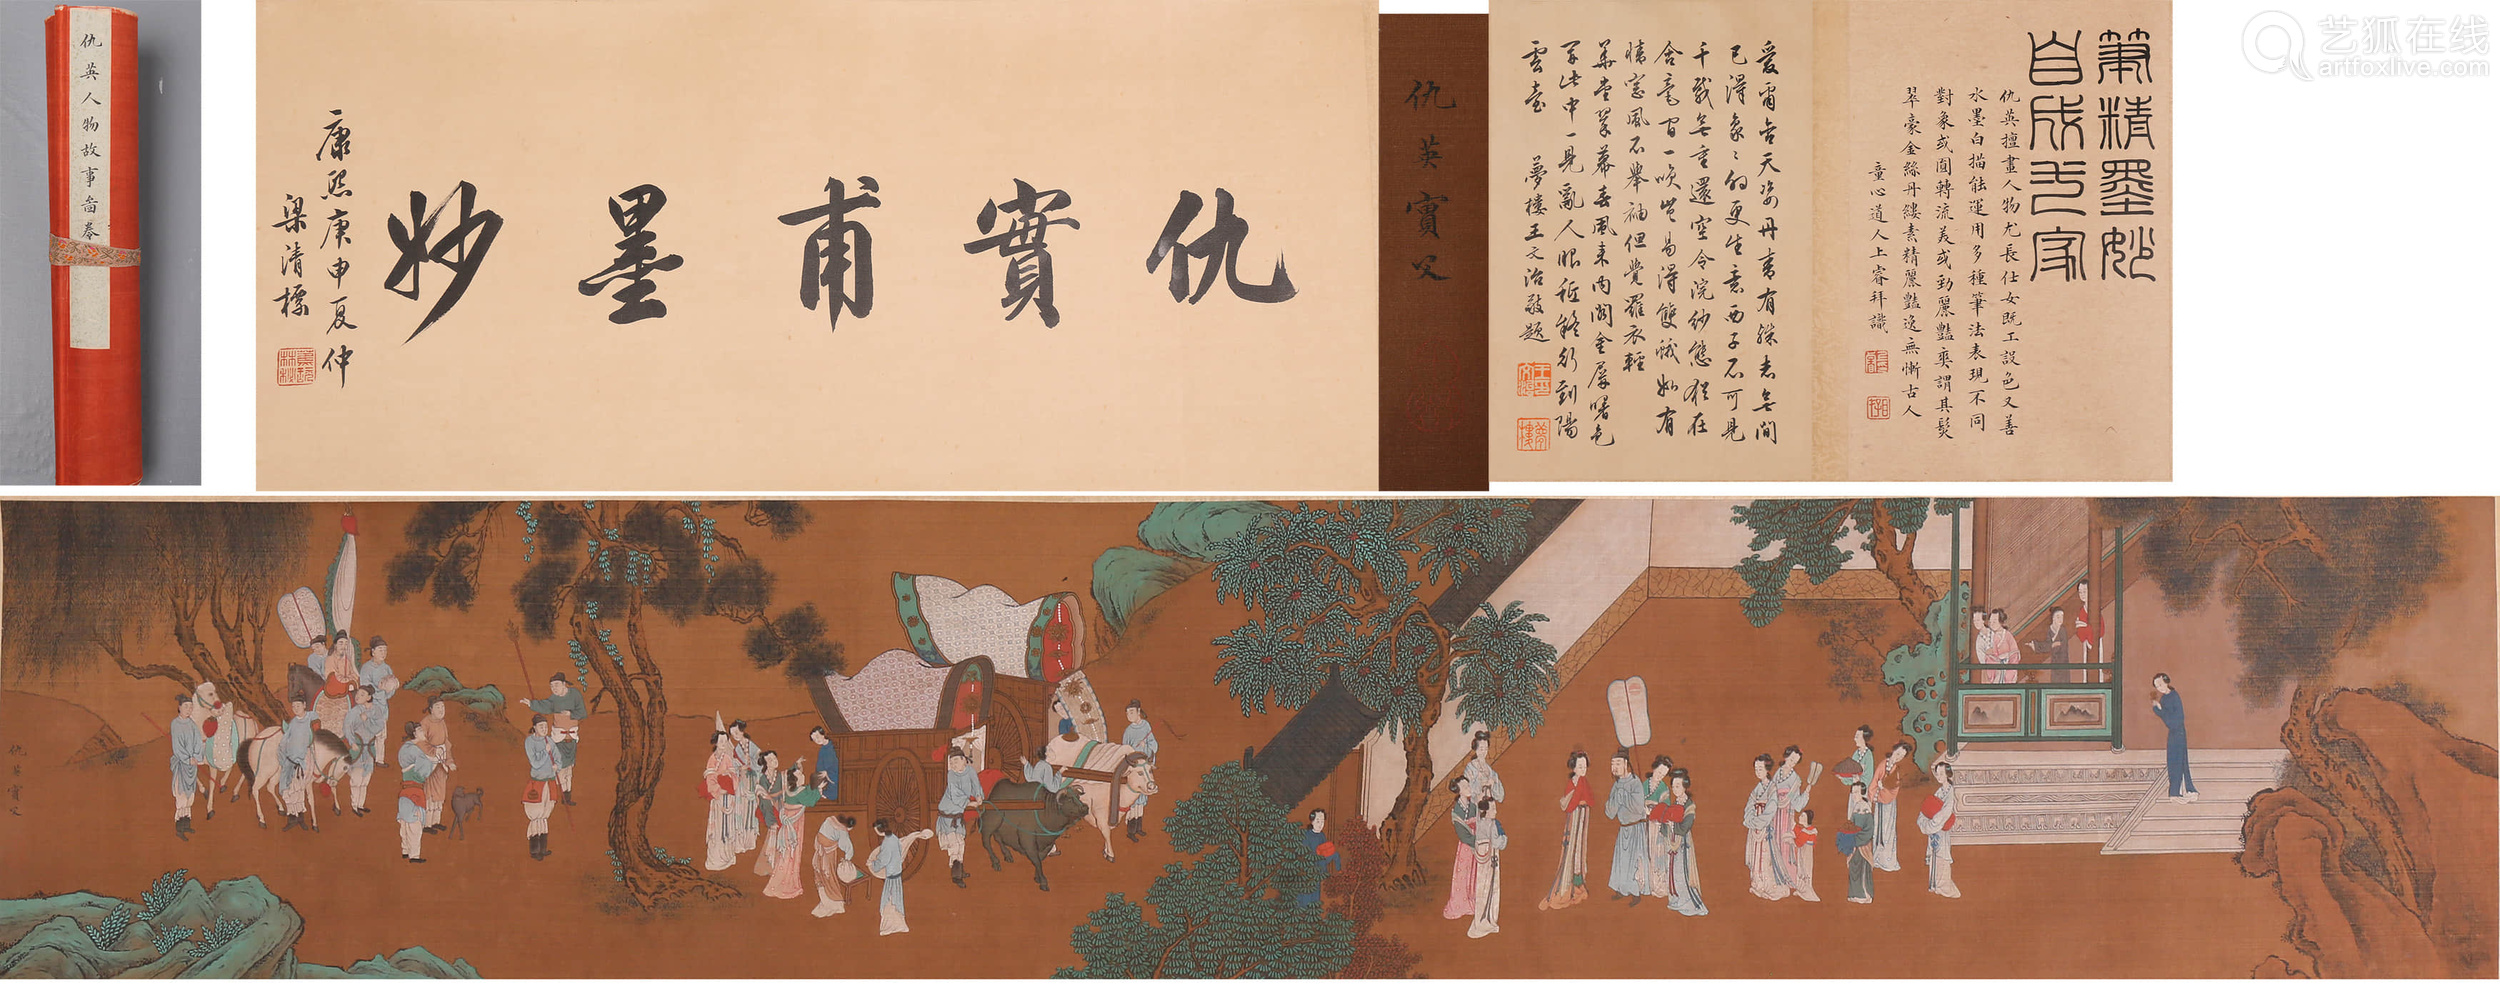 仇英人物故事啚卷
仇實甫墨妙
康熙庚申夏仲
梁清標
仇英實父
筆精墨妙
自成弌家
仇英擅畫人物尤長仕女既工設色又善
水墨白描能運用多種筆法表現不同
對象或圓轉流美或勁麗豔爽謂其髮
翠豪金絲丹縷素精麗豔逸無慚古人
童心道人上睿拜識
愛爾含天姿丹青有殊志無間
已得象々外更生意西子不可見
千載無重還空令浣紗態猶在
含毫間一唤豈易得雙蛾如有
情窓風不舉袖但覺羅衣輕
華堂翠幕春風來內閣金屏曙色
開此中一見亂人眼祗疑行到陽
雲臺 夢樓王文治敬題
仇英實父
艺狐在线
artfoxlive.com